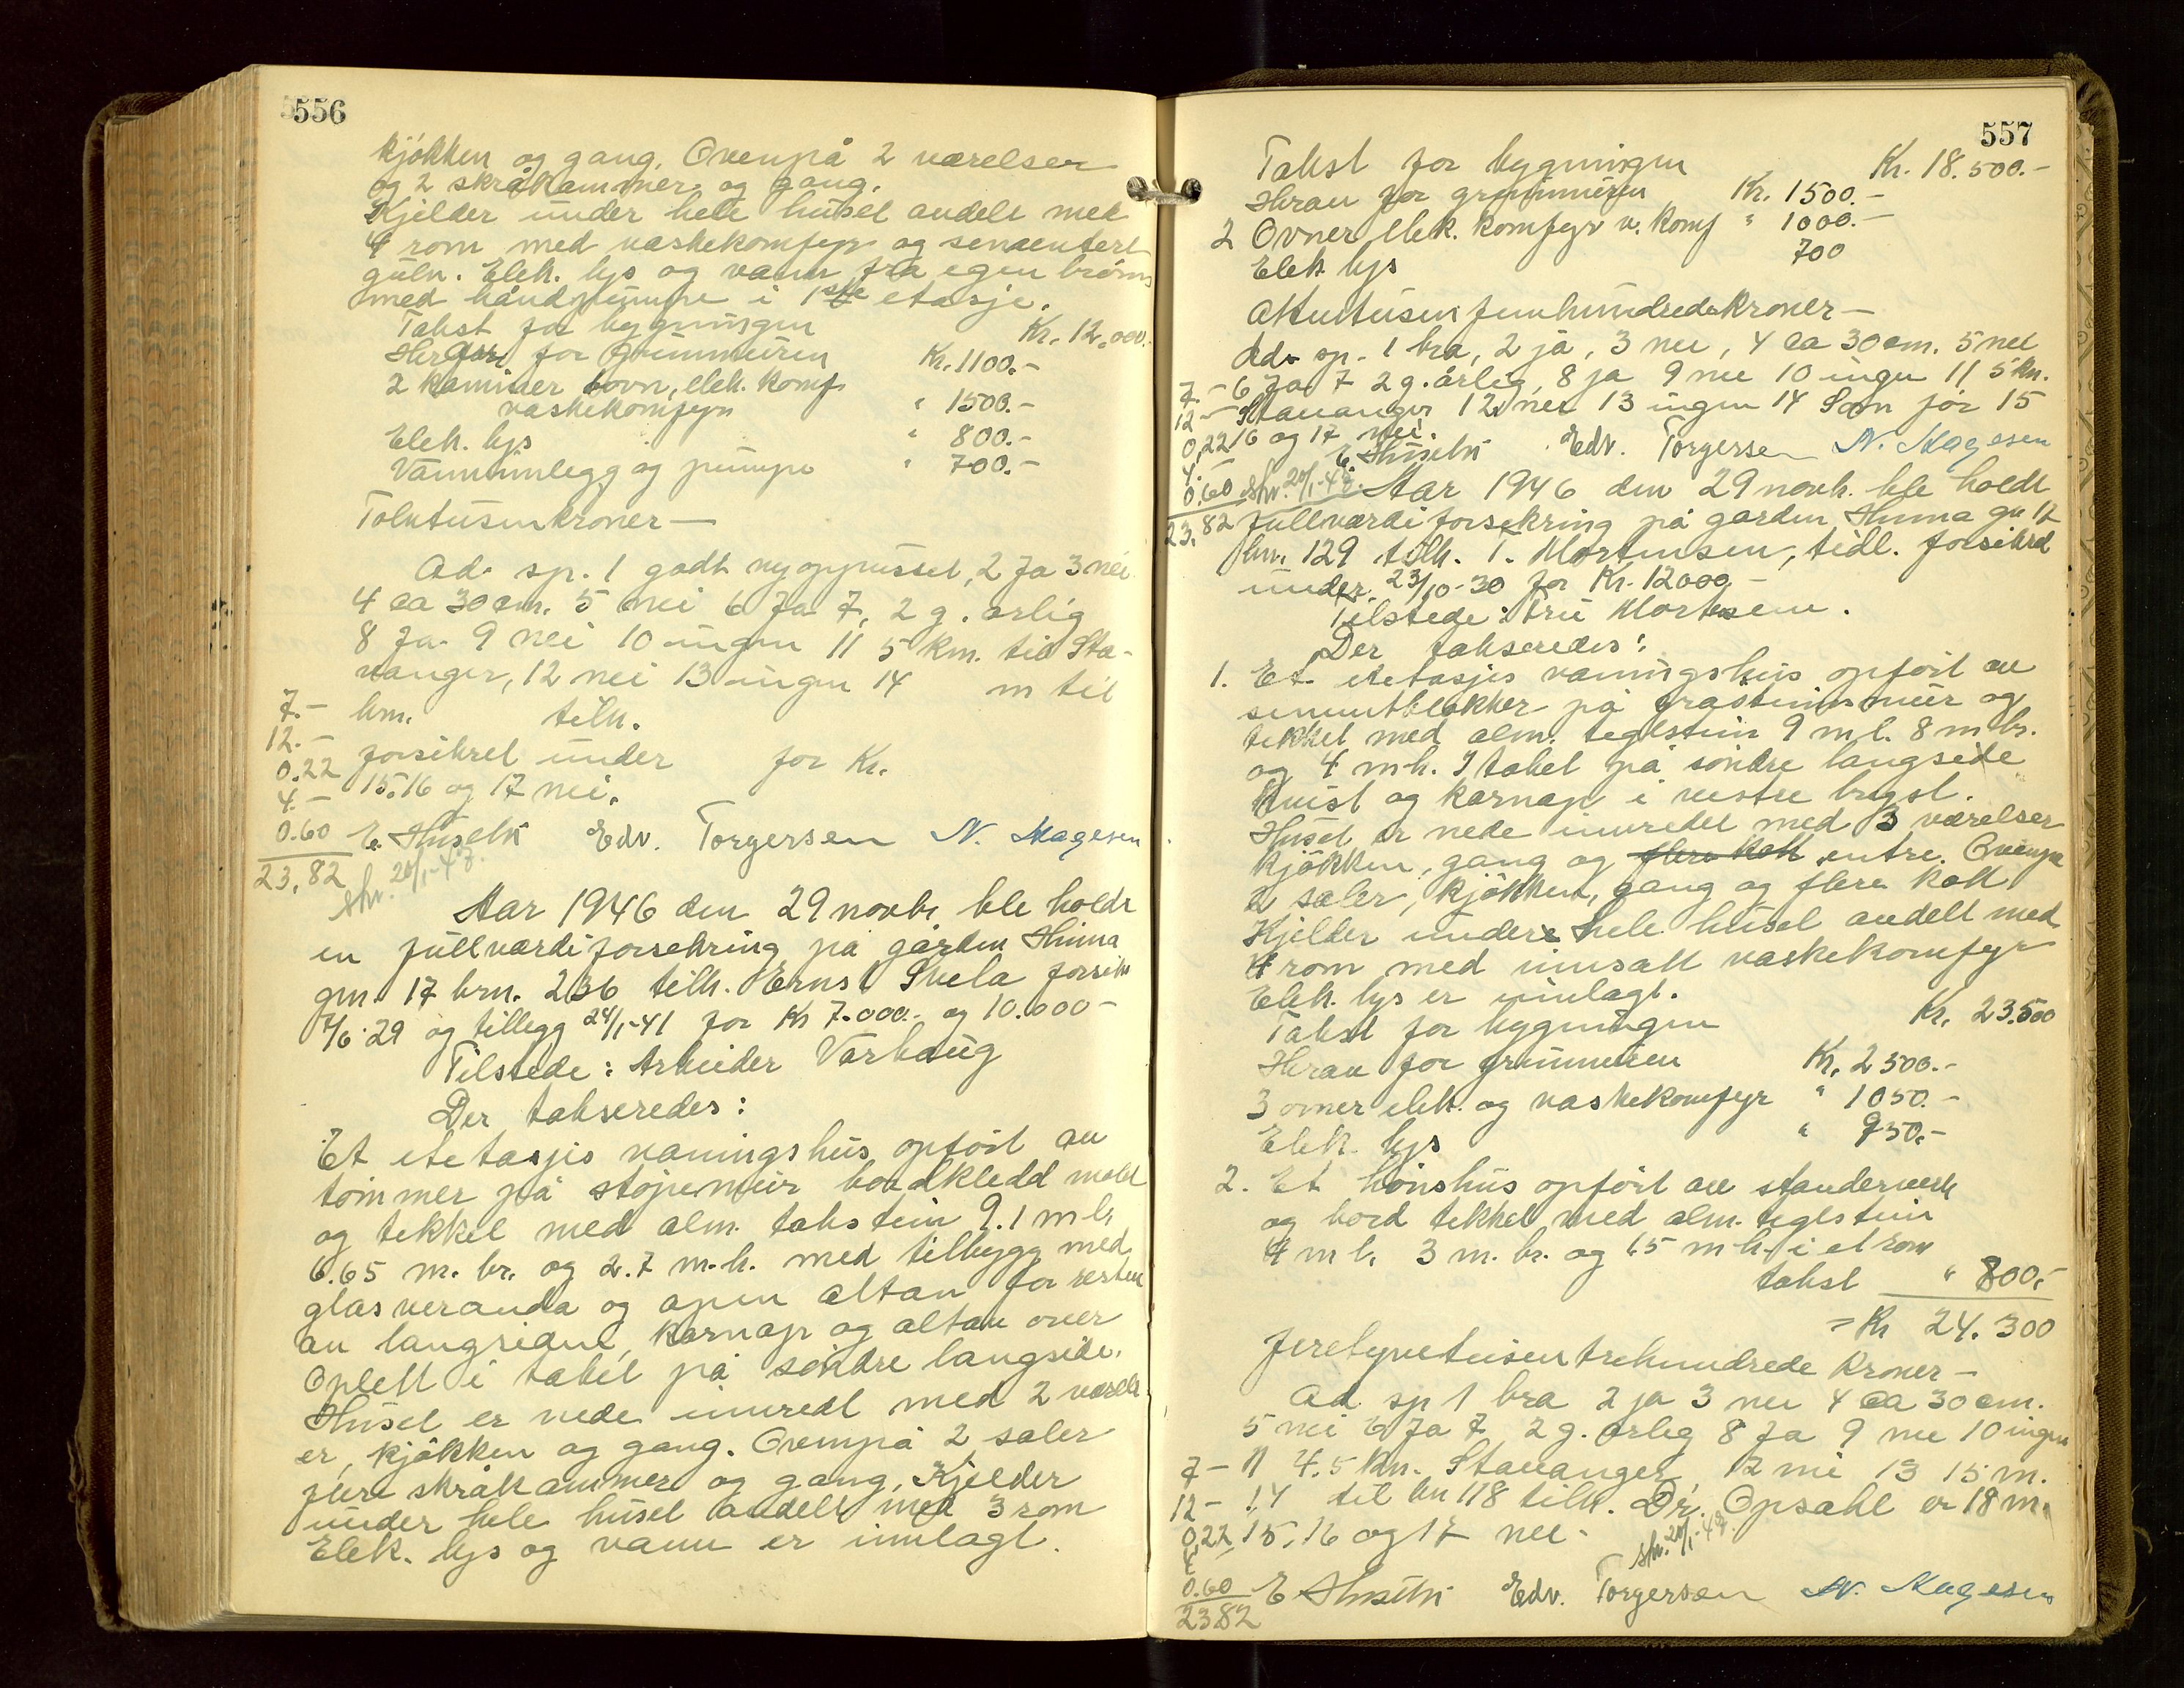 556
kjökken og gang. Ovenpå 2 værelser
og 2 skråkammer og gang.
Kjelder under hele huset avdelt med
4 rom med vaskekomfyr og sementert
gulv. Elek. lys og vann fra egen brönn
med håndpumpe i 1ste etasje.
Takst for bygningen Kr. 12.000.-
Herav for grunmuren Kr. 1100.-
2 kaminer ovn, elek. komf
vaskekomfyr " 1500.-
Elek. lys " 800.-
Vanninnlegg og pumpe " 700.-
Tolvtusenkroner —
Ad. sp. 1 godt nyoppusset, 2 Ja 3 nei
4 ca 30 cm. 5 nei 6 Ja 7, 2 g. årlig
8 Ja 9 nei 10 ingen 11 5 km. til Sta-
vanger, 12 nei 13 ingen 14 m til
7.- bnr. tilh.
12.- forsikret under for Kr.
0.22 15.16 og 17 nei.
4.-
0.60 E. Husebö Edv. Torgersen N. Magesen
23,82 skr. 20/1-47.
Aar 1946 den 29 novbr ble holdt
en fullverdiforsekring på gården Hinna
gnr. 17 brn. 236 tilh. Ernst Svela forsikr
4/6 29 og tillegg 24/1-41 for Kr 7.000.- og 10.000-
Tilstede: Arbeider Varhaug
Der takseredes:
Et etetasjes vaningshus opfört av
tömmer på stöpemur bordkledd malt
og tekket med alm. takstein 9.1 m l.
6.65 m. br. og 2.7 m.h. med tilbygg med
glasveranda og åpen altan for resten
av langsiden, karnap og altan over
Oplett i taket på söndre langside.
Huset er nede innredt med 2 værels
er, kjökken og gang. Ovenpå 2 saler
flere skråkammer og gang. Kjelder
under hele huset avdelt med 3 rom
Elek. lys og vann er innlagt.
557
Takst for bygningen Kr. 18.500.-
Herav for grunmuren Kr. 1500.-
2 Ovner elek. komfyr v. komf " 1000.-
Elek lys 700
Attentusen femhundredekroner —
Ad. sp. 1 bra, 2 ja, 3 nei, 4 ca 30 cm. 5 nei
7.- 6 Ja 7 2 g. årlig, 8 ja 9 nei 10 ingen 11 5 km.
12- Stavanger 12 nei 13 ingen 14 Som för 15
0,22 16 og 17 nei.
4.- E. Husebö Edv. Torgersen N. Magesen
0.60 skr. 20/1-47. Aar 1946 den 29 novb. ble holdt
23,82 fullverdiforsekring på garden Hinna gn 17
bn. 129 tilh. T. Mortensen, tidl. forsikred
under 23/10-30 for Kr. 12000 -
Tilstede: Fru Mortensen.
Der takseredes:
1. Et etetasjes vaningshus opfört av
sementblokker på gråsteinsmur og
tekket med alm. teglstein 9 m l. 8 m br.
og 4 m h. I taket på söndre langside
kvist og karnap i vestre bryst.
Huset er nede innredet med 3 værelser
kjökken, gang og entre. Ovenpå
2 saler, kjökken, gang og flere kott
Kjelder under hele huset avdelt med
4 rom med innsatt vaskekomfyr
Elek. lys er innlagt.
Takst for bygningen Kr. 23.500
Herav for grunmuren Kr. 2500.-
3 ovner elek. og vaskekomfyr " 1050.-
Elek. lys " 950.-
2. Et hönshus opfört av standerverk
og bord tekket med alm. teglstein
4 m l. 3 m. br. og 1.5 m h. i et rom
takst " 800.-
= Kr 24.300
Firetyvetusentrehundrede Kroner —
Ad sp 1 bra 2 ja 3 nei 4 ca 30 cm.
5 nei 6 Ja 7 2 g. årleg 8 Ja 9 nei 10 ingen
7- 11 4.5 km. Stavanger, 12 nei 13 15 m.
12- 14 til bn 118 tilh. Dr. Opsahl er 18 m.
0,22 15, 16 og 17 nei.
4 skr. 20/1-47.
0.60 E Husebö Edv. Torgersen N. Magesen
2382